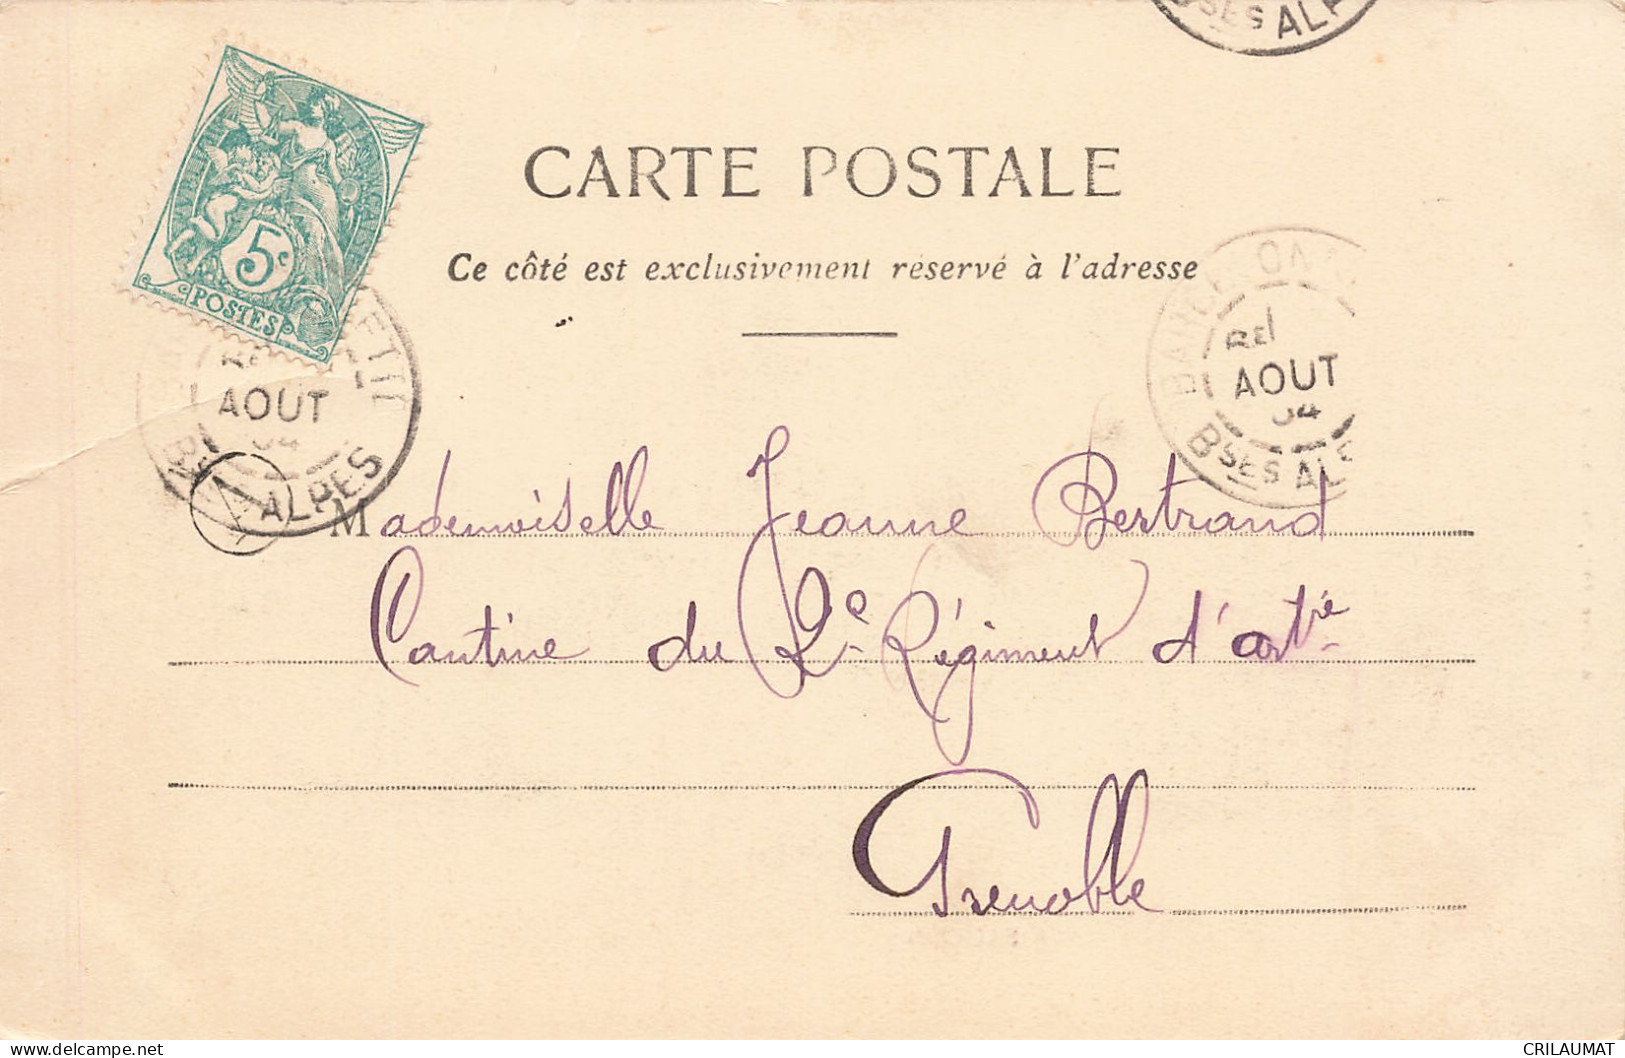 Bses ALP
CARTE POSTALE
Ce côté est exclusivement réservé à l'adresse
5c
POSTES
AOUT
04
ALPES
A
BARCELON
RE1
AOUT
04
Bses ALP
Mademoiselle Jeanne Bertrand
Cantine du 2e Régiment d'artie
Grenoble
CRILAUMAT